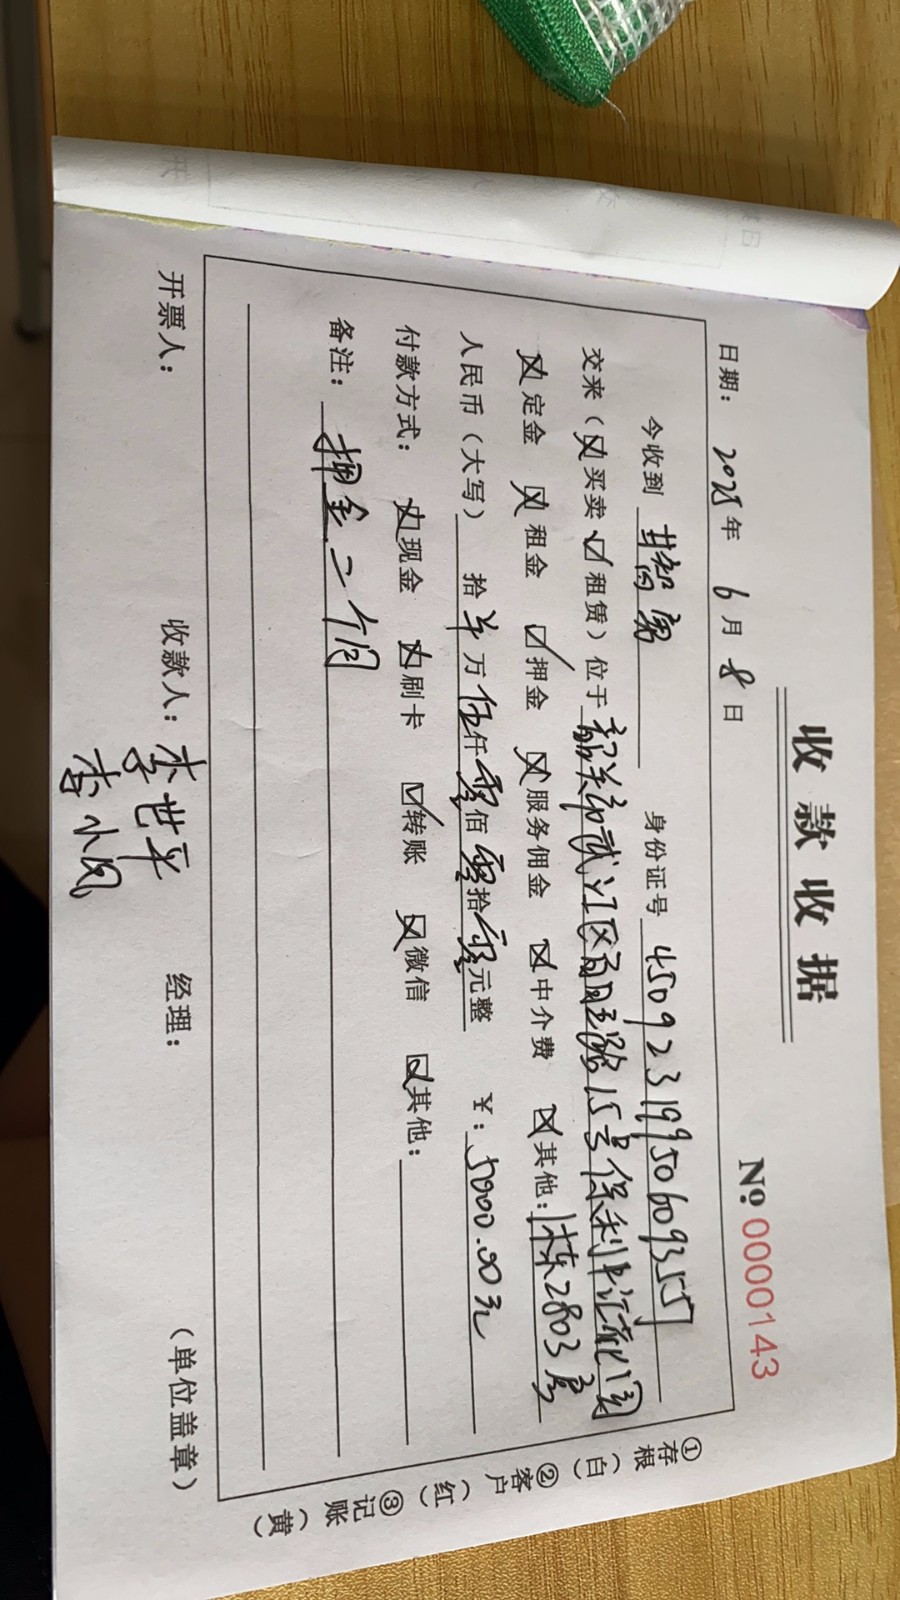 收款收据
№0000143
日期： 2025年 6月 8日
今收到 甘智家 身份证号 450923199506093551
交来（☒买卖 ☑租赁）位于 韶关市武江区 15号保利中汇花园
☒定金 ☒租金 ☑押金 ☒服务佣金 ☒中介费 ☒其他：1栋2803房
人民币（大写） 拾 万 伍仟零佰零拾零元整 ￥：5000.00元
付款方式： ☒现金 ☒刷卡 ☑转账 ☒微信 其他：
备注： 押金二个月
开票人： 收款人：李世平 经理： （单位盖章）
李小凤
①存根（白）②客户（红）③记账（黄）